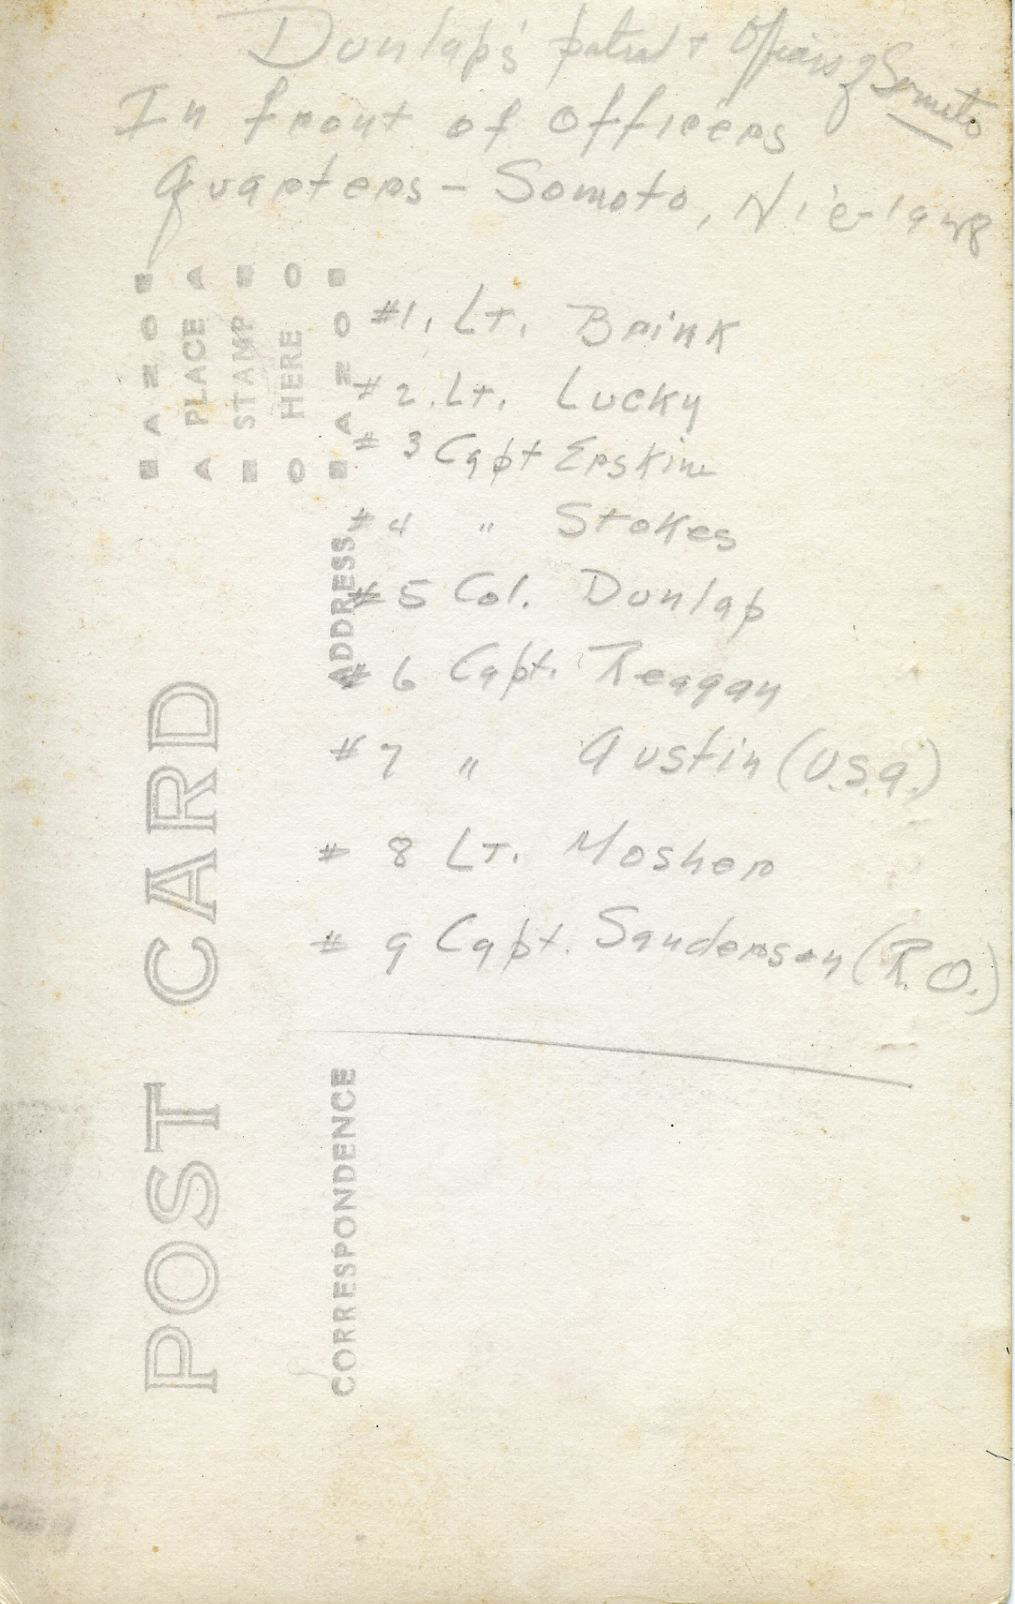 Dunlap's patrol + Officers of Somoto
In front of officers
quarters - Somoto, Nic - 1928
#1. Lt. Brink
#2. Lt. Lucky
#3 Capt Erskine
#4 " Stokes
#5 Col. Dunlap
#6 Capt. Reagan
#7 " Austin (U.S.A.)
#8 Lt. Mosher
#9 Capt. Sanderson (R.O.)
PLACE
STAMP
HERE
AZO
AZO
POST CARD
ADDRESS
CORRESPONDENCE